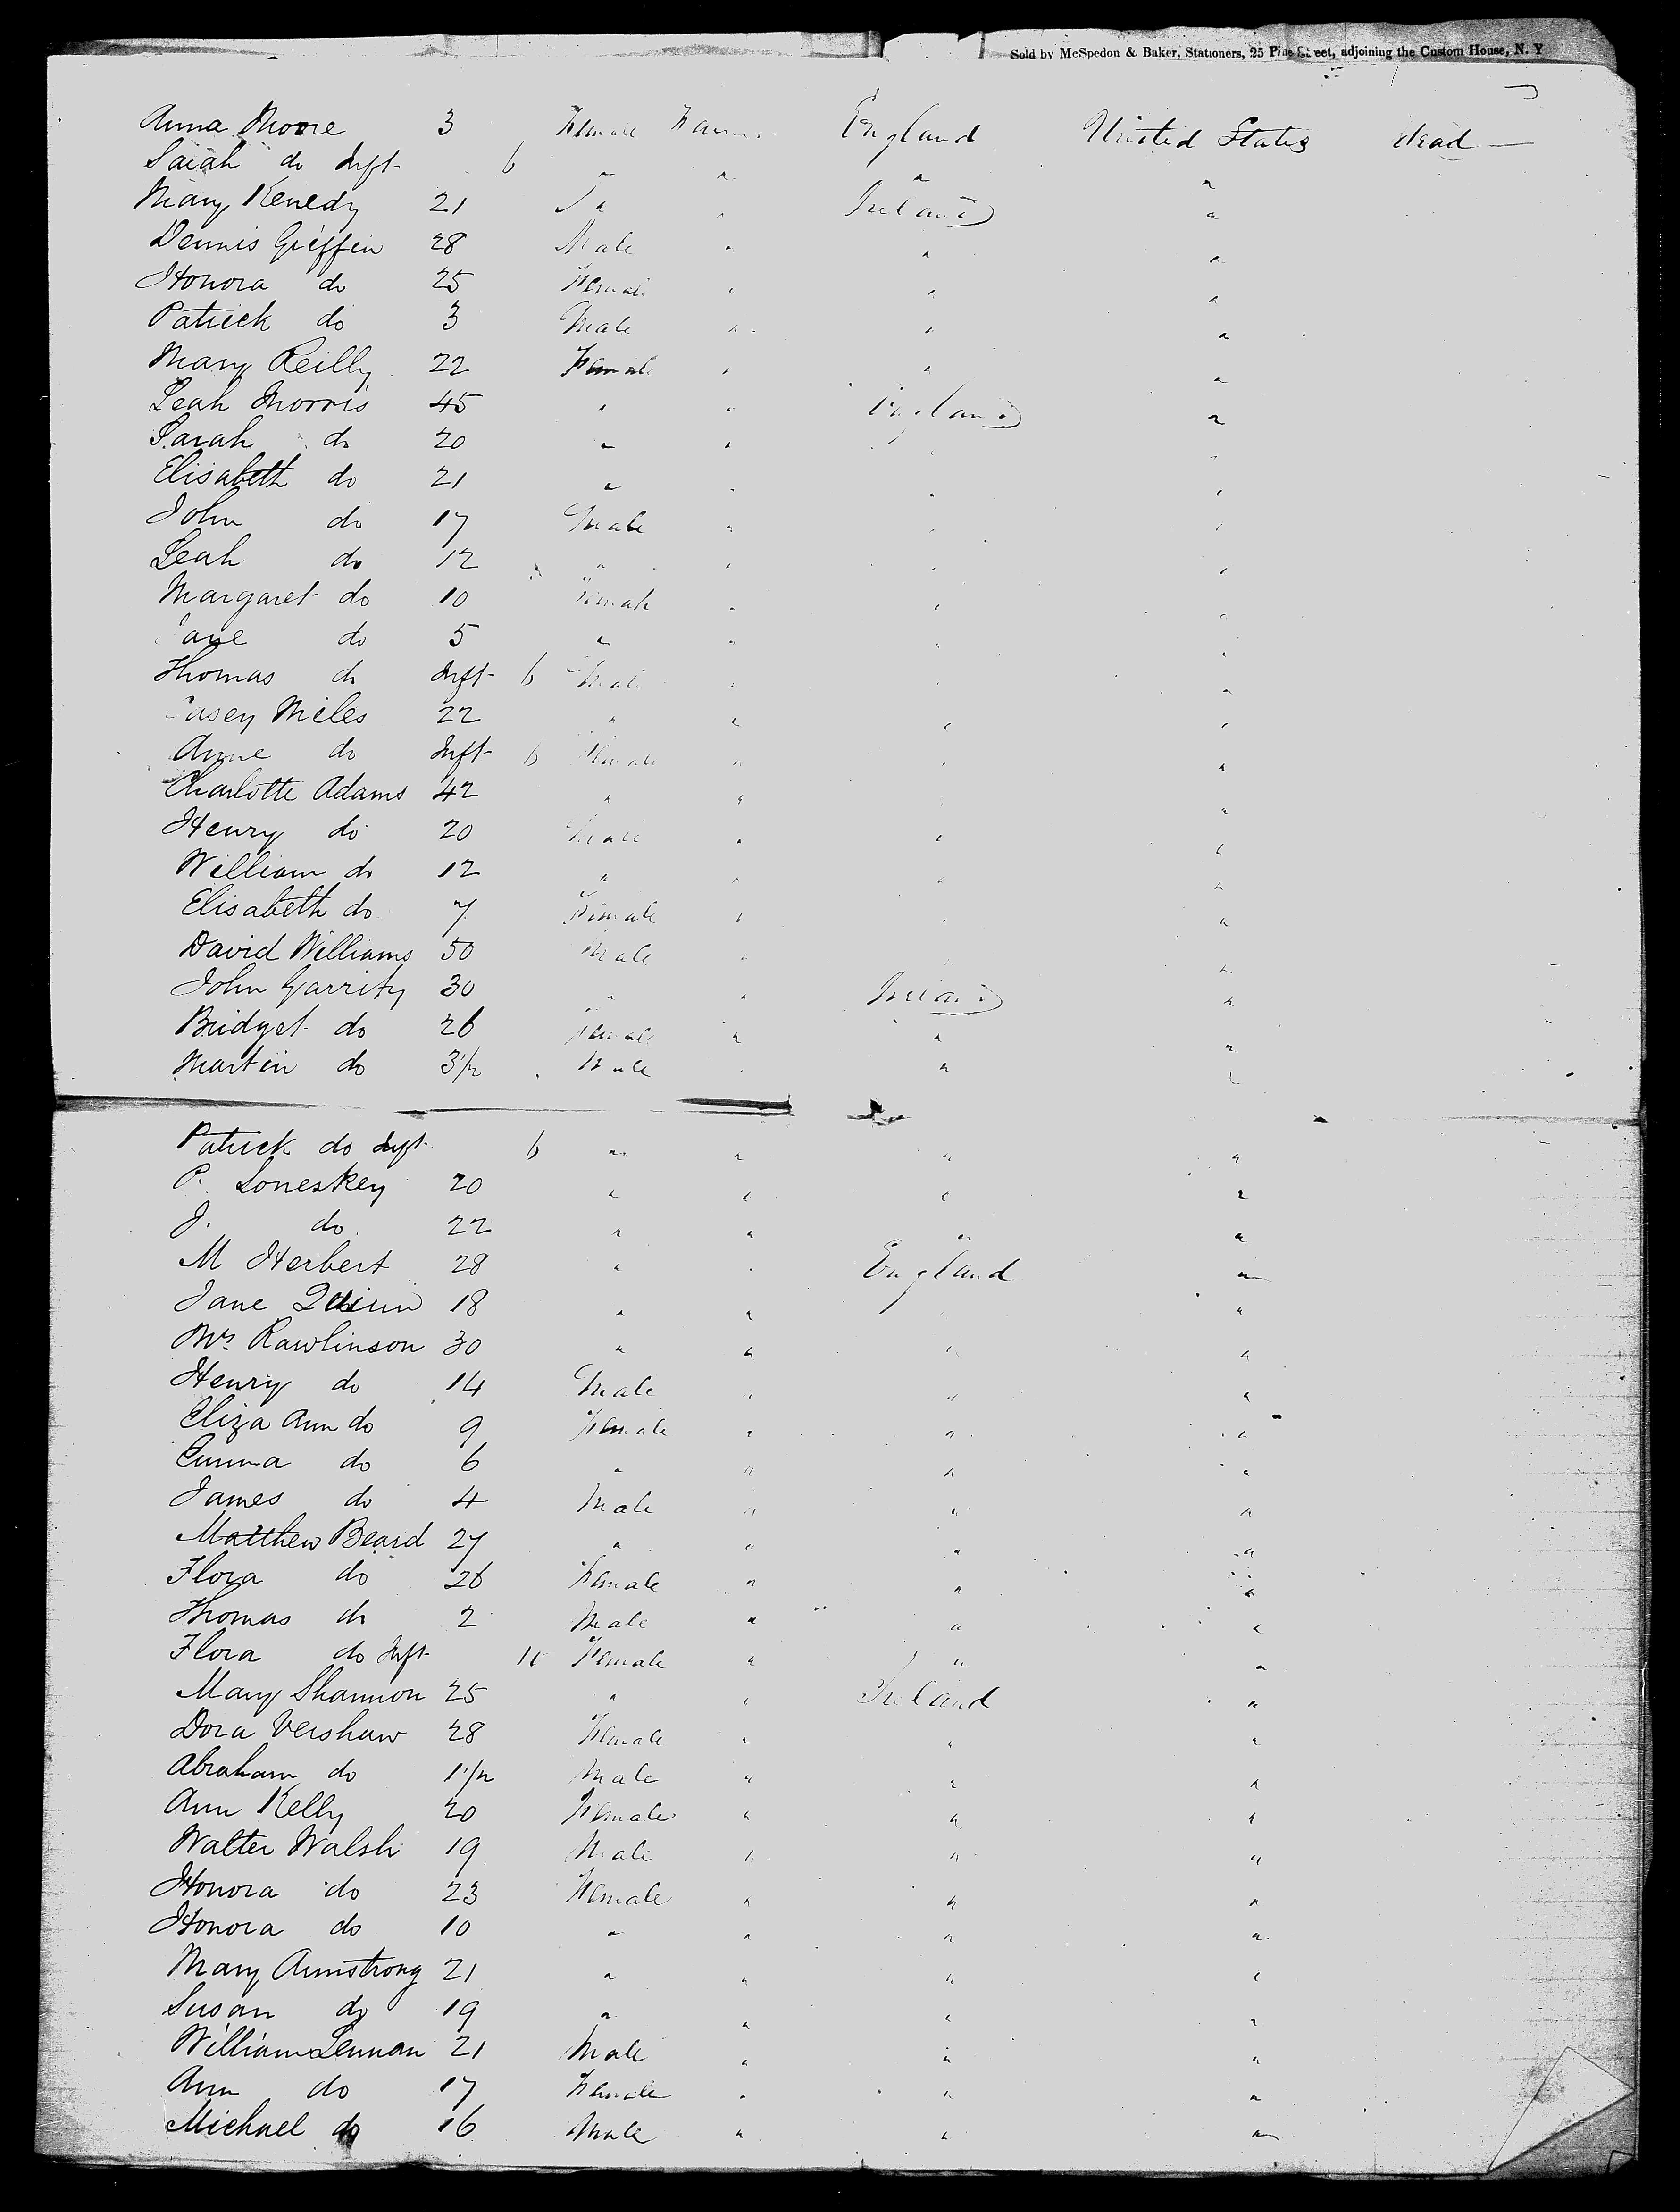 Sold by McSpedon & Baker, Stationers, 25 Pine Street, adjoining the Custom House, N. Y
Anna Moore 3 Female Farmer England United States dead —
Sarah do Inft 6 " " " "
Mary Kenedy 21 " " Ireland "
Dennis Griffin 28 Male " " "
Honora do 25 Female " " "
Patrick do 3 Male " " "
Mary Reilly 22 Female " " "
Leah Morris 45 " " England "
Sarah do 20 " " "
Elisabeth do 21 " " " "
John do 17 Male " " "
Leah do 12 " " " "
Margaret do 10 Female " " "
Jane do 5 " " " "
Thomas do Inft 6 Male " " "
Casey Miles 22 " " " "
Anne do Inft 6 Female " " "
Charlotte Adams 42 " " " "
Henry do 20 Male " " "
William do 12 " " " "
Elisabeth do 7 Female " " "
David Williams 50 Male " " "
John Garrity 30 " " Ireland "
Bridget do 26 Female " " "
Martin do 3 1/2 Male " " "
Patrick do Inft 6 " " " "
P. Loneskey 20 " " " "
J. do 22 " " " "
M Herbert 28 " " England "
Jane Quinn 18 " " " "
Mrs Rawlinson 30 " " " "
Henry do 14 Male " " "
Eliza Ann do 9 Female " " "
Emma do 6 " " " "
James do 4 Male " " "
Matthew Beard 27 " " " "
Flora do 26 Female " " "
Thomas do 2 Male " " "
Flora do Inft 10 Female " " "
Mary Shannon 25 " " Ireland "
Dora Vershaw 28 Female " " "
Abraham do 1 1/2 Male " " "
Ann Kelly 20 Female " " "
Walter Walsh 19 Male " " "
Honora do 23 Female " " "
Honora do 10 " " " "
Mary Armstrong 21 " " " "
Susan do 19 " " " "
William Lennan 21 Male " " "
Ann do 17 Female " " "
Michael do 16 Male " " "